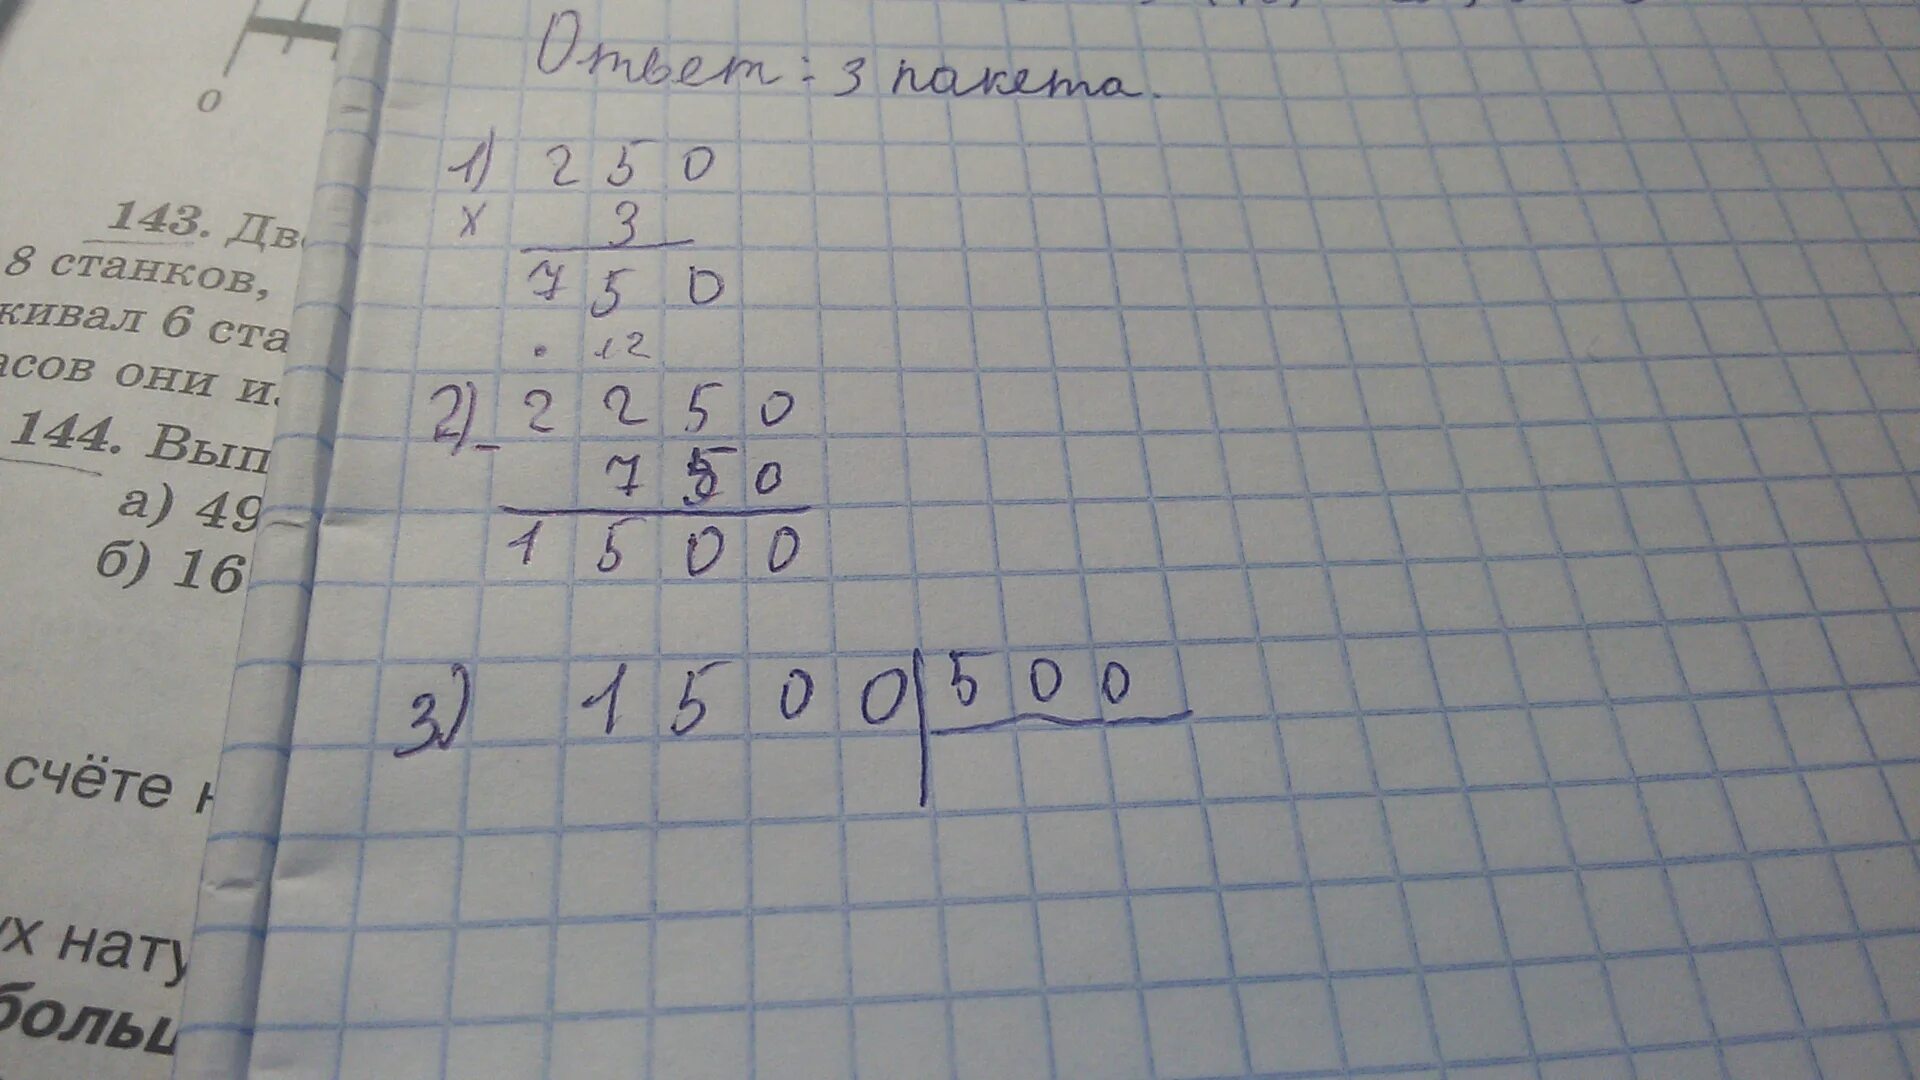 Ответ: 3 пакета.
1) 250
х 3
750
. 12
2) - 2250
750
1500
3) 1500 500
0
143. Дв
8 станков,
живал 6 ста
асов они и
144. Вып
а) 49
б) 16
счёте н
ух нату
больш